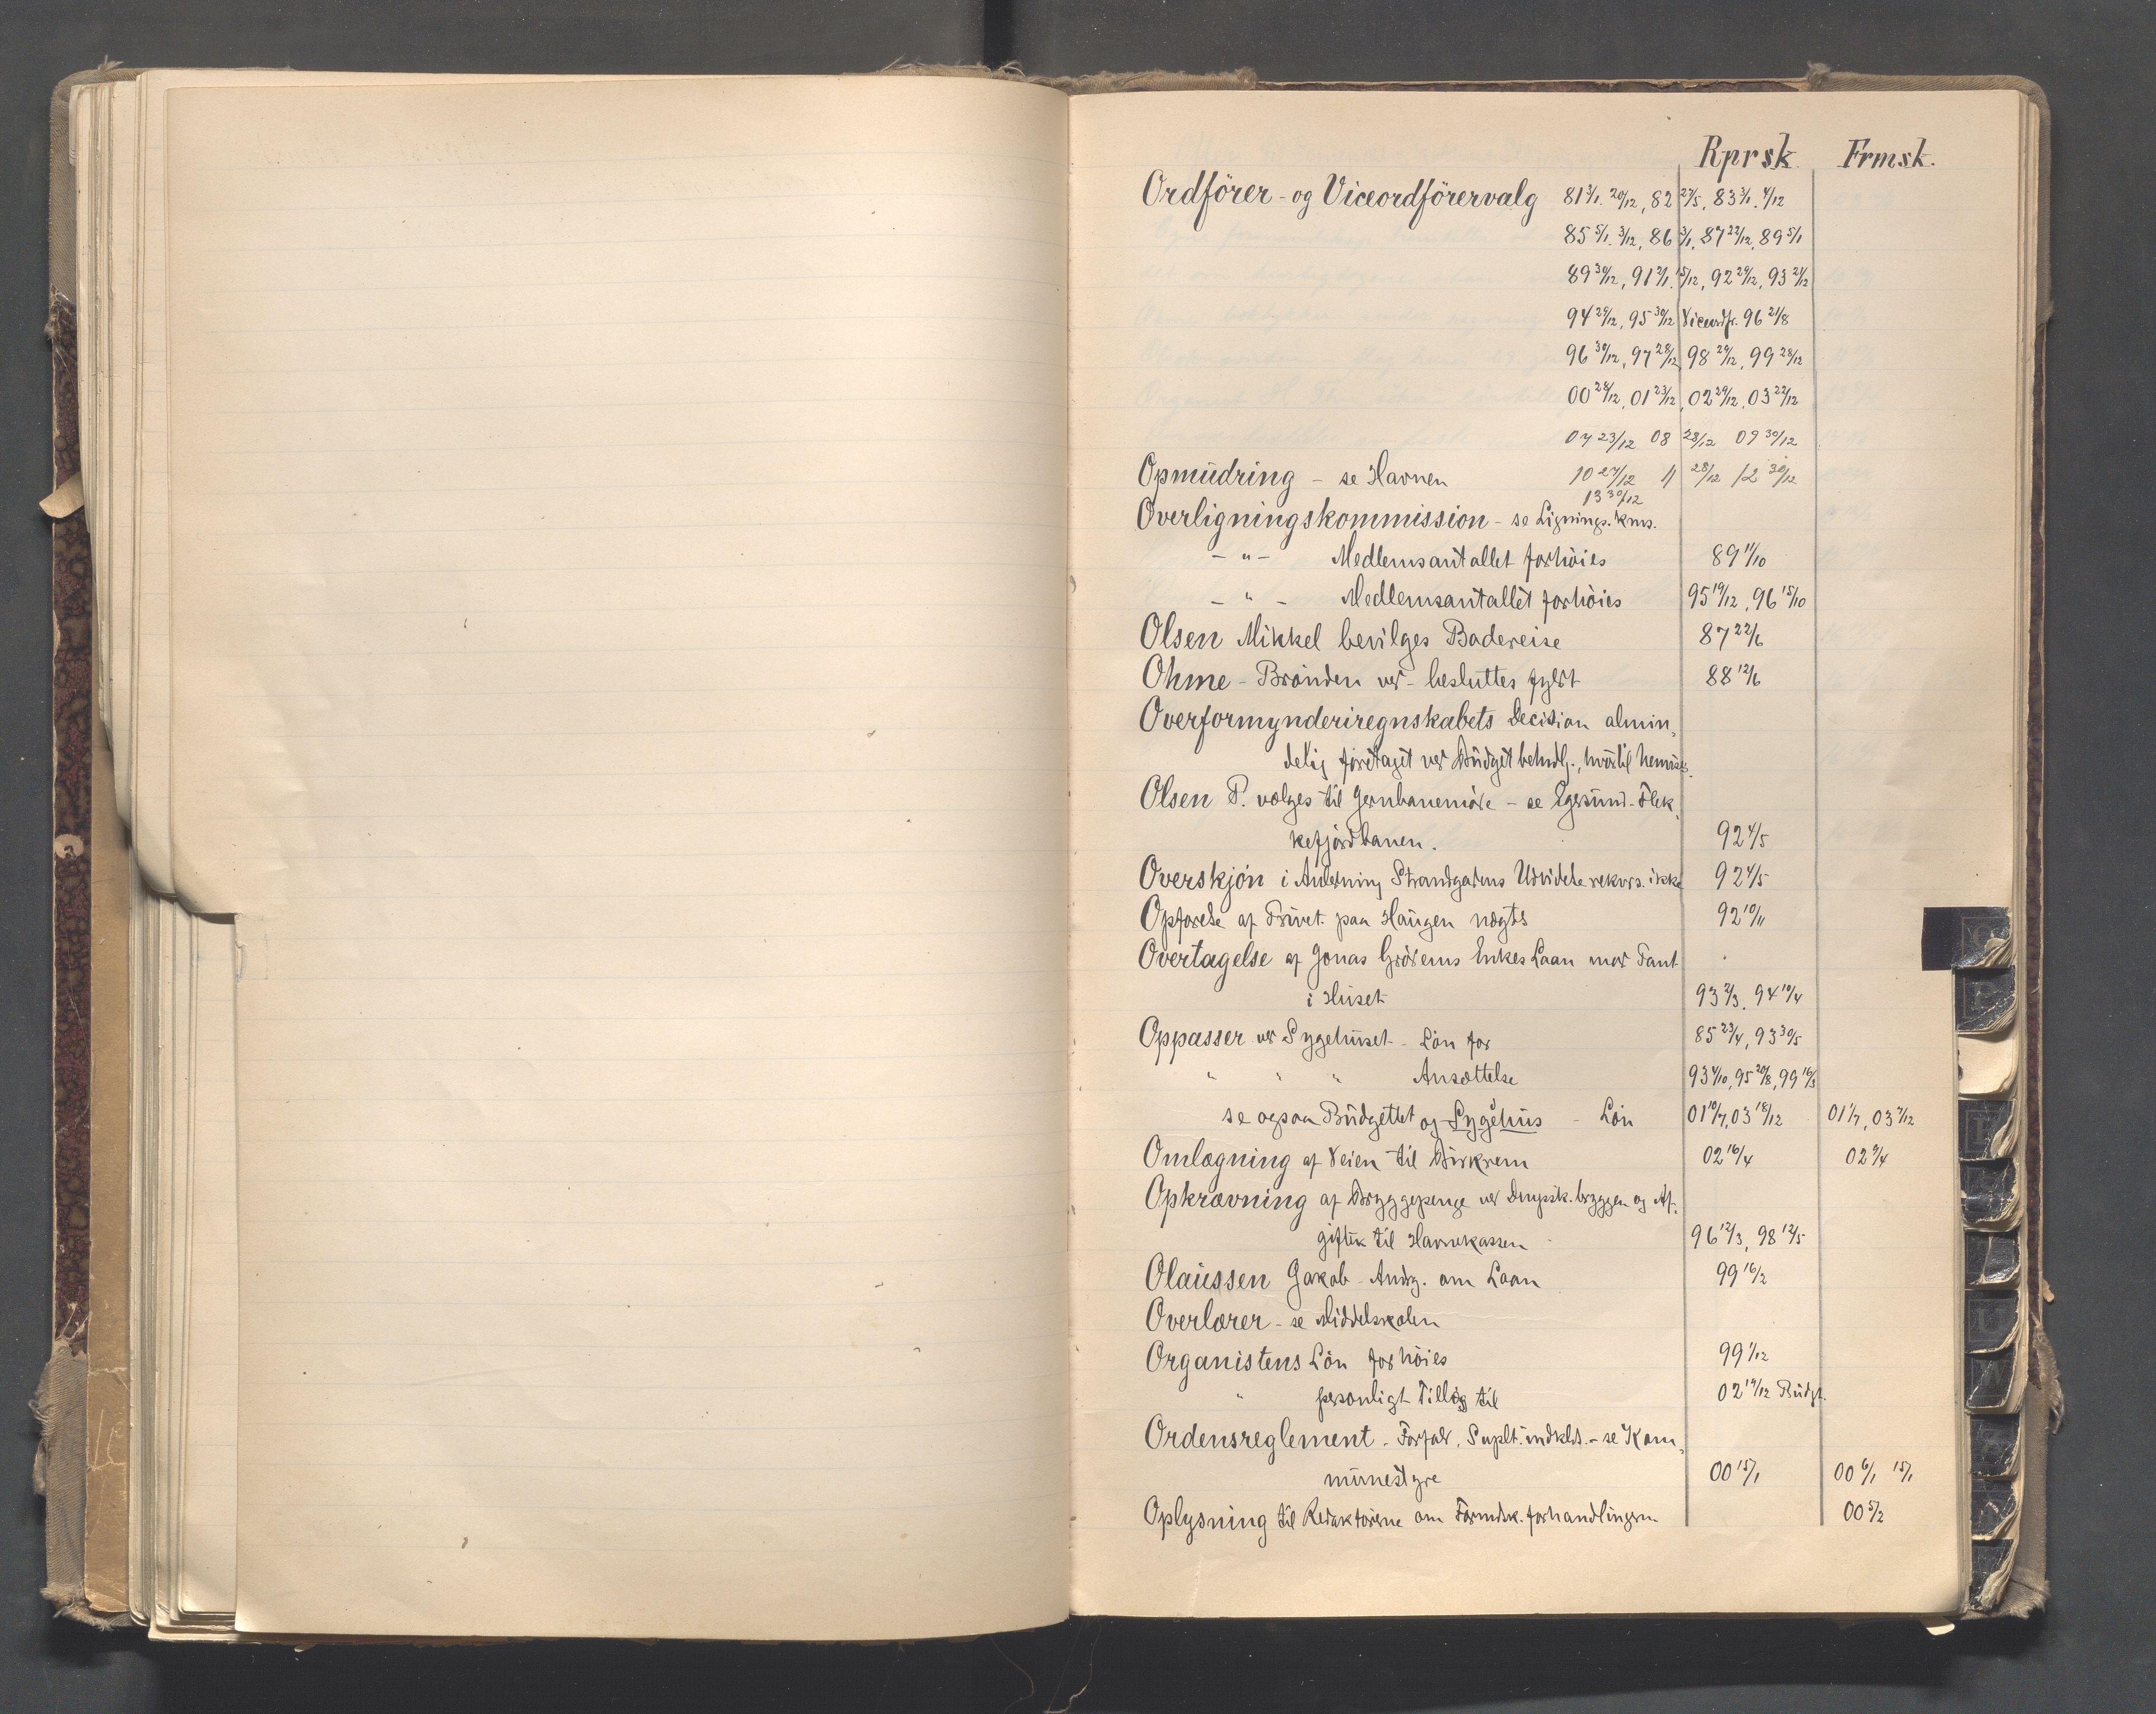 Rprsk. Frmsk.
Ordförer - og Viceordförervalg 81 3/1. 20/12, 82 27/5, 83 3/1. 4/12
85 5/1. 3/12, 86 3/1, 87 22/12, 89 5/1
89 30/12, 91 2/1. 15/12, 92 29/12, 93 21/12
94 29/12, 95 30/12 Viceordf. 96 21/8
96 30/12, 97 28/12, 98 29/12, 99 28/12
00 28/12, 01 23/12, 02 29/12, 03 22/12
07 23/12 08 28/12 09 30/12
Opmudring - se Havnen 10 27/12 11 28/12 12 30/12
13 30/12
Overligningskommission - se Lignings.kms.
- " - Medlemsantallet forhöies 89 11/10
- " - Medlemsantallet forhöies 95 19/12, 96 15/10
Olsen Mikkel bevilges Badereise 87 22/6
Ohme - Brönden ved - besluttes fyldt 88 12/6
Overformynderiregnskabets Decision almin„
delig foretaget ved Budgetbehndlg., hvortil henvises.
Olsen P. vælges til Jernbanemöde - se Egersund-Flek„
kefjordbanen. 92 4/5
Overskjön i Anledning Strandgadens Udvidelse rekvir. ikke 92 4/5
Opförelse af Privet paa Haugen nægtes 92 10/11
Overtagelse af Jonas Grödems Enkes Laan mod Pant
i Huset 93 2/3, 94 10/4
Oppasser ved Sygehuset - Lön for 85 23/4, 93 30/5
" " " Ansættelse 93 4/10, 95 20/8, 99 16/3
se ogsaa Budgettet og Sygehus - Lön 01 10/7, 03 18/12 01 1/7, 03 7/12
Omlægning af Veien til Birkrem 02 16/4 02 9/4
Opkrævning af Bryggepenge ved Dmpsk.bryggen og Af„
gifter til Havnekassen 96 12/3, 98 12/5
Olaussen Jakob - Andrg. om Laan 99 16/2
Overlærer - se Middelskolen
Organistens Lön forhöies 99 1/12
" personligt Tillæg til 02 19/12 Budgt.
Ordensreglement - Forfald, Suplt. indkld. - se Kom„
munestyre 00 15/1 00 6/1 15/1
Oplysning til Redaktörerne om Formdsk.forhandlingern 00 5/2